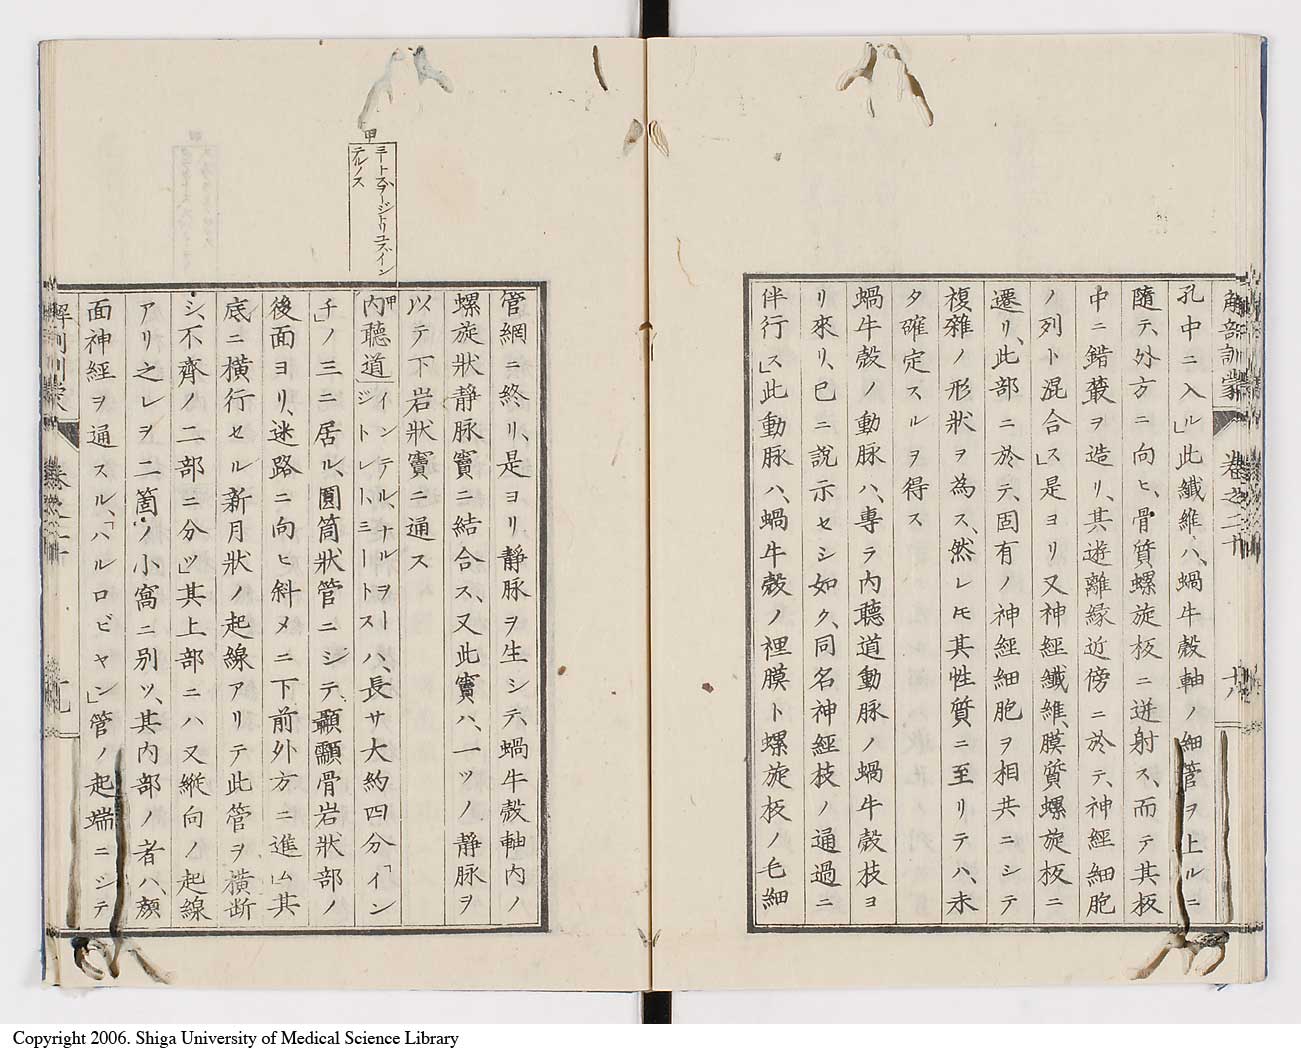 解剖訓蒙 卷之二十 十八
孔中ニ入ル」此纖維ハ、蝸牛殼軸ノ細管ヲ上ルニ
隨テ、外方ニ向ヒ、骨質螺旋板ニ迸射ス、而テ其板
中ニ錯叢ヲ造リ、其遊離緣近傍ニ於テ、神經細胞
ノ列ト混合ス」是ヨリ又神經纖維、膜質螺旋板ニ
遷リ、此部ニ於テ、固有ノ神經細胞ヲ相共ニシテ
複雜ノ形狀ヲ為ス、然レ𪜈其性質ニ至リテハ、未
タ確定スルヲ得ス
蝸牛殼ノ動脉ハ、專ラ內聽道動脉ノ蝸牛殼枝ヨ
リ來リ、已ニ說示セシ如ク、同名神經枝ノ通過ニ
伴行ス」此動脉ハ、蝸牛殼ノ裡膜ト螺旋板ノ毛細
管網ニ終リ、是ヨリ静脉ヲ生シテ、蝸牛殼軸內ノ
螺旋狀静脉竇ニ結合ス、又此竇ハ、一ツノ静脉ヲ
以テ下岩狀竇ニ通ス
甲
ミートスヲージトリユス、イン
テルノス
甲
內聽道「インテル、ナル、ヲー
ジトレ、ミートス」ハ、長サ大約四分「イン
チ」ノ三ニ居ル、圓筒狀管ニシテ、顳顬骨岩狀部ノ
後面ヨリ、迷路ニ向ヒ斜メニ下前外方ニ進ム其
底ニ橫行セル新月狀ノ起線アリテ此管ヲ橫断
シ、不齊ノ二部ニ分ツ」其上部ニハ又縱向ノ起線
アリ之レヲ二箇ノ小窩ニ別ツ、其內部ノ者ハ、顏
面神經ヲ通スル、「ハルロピヤン」管ノ起端ニシテ
解剖訓蒙 卷之二十 十九
Copyright 2006. Shiga University of Medical Science Library